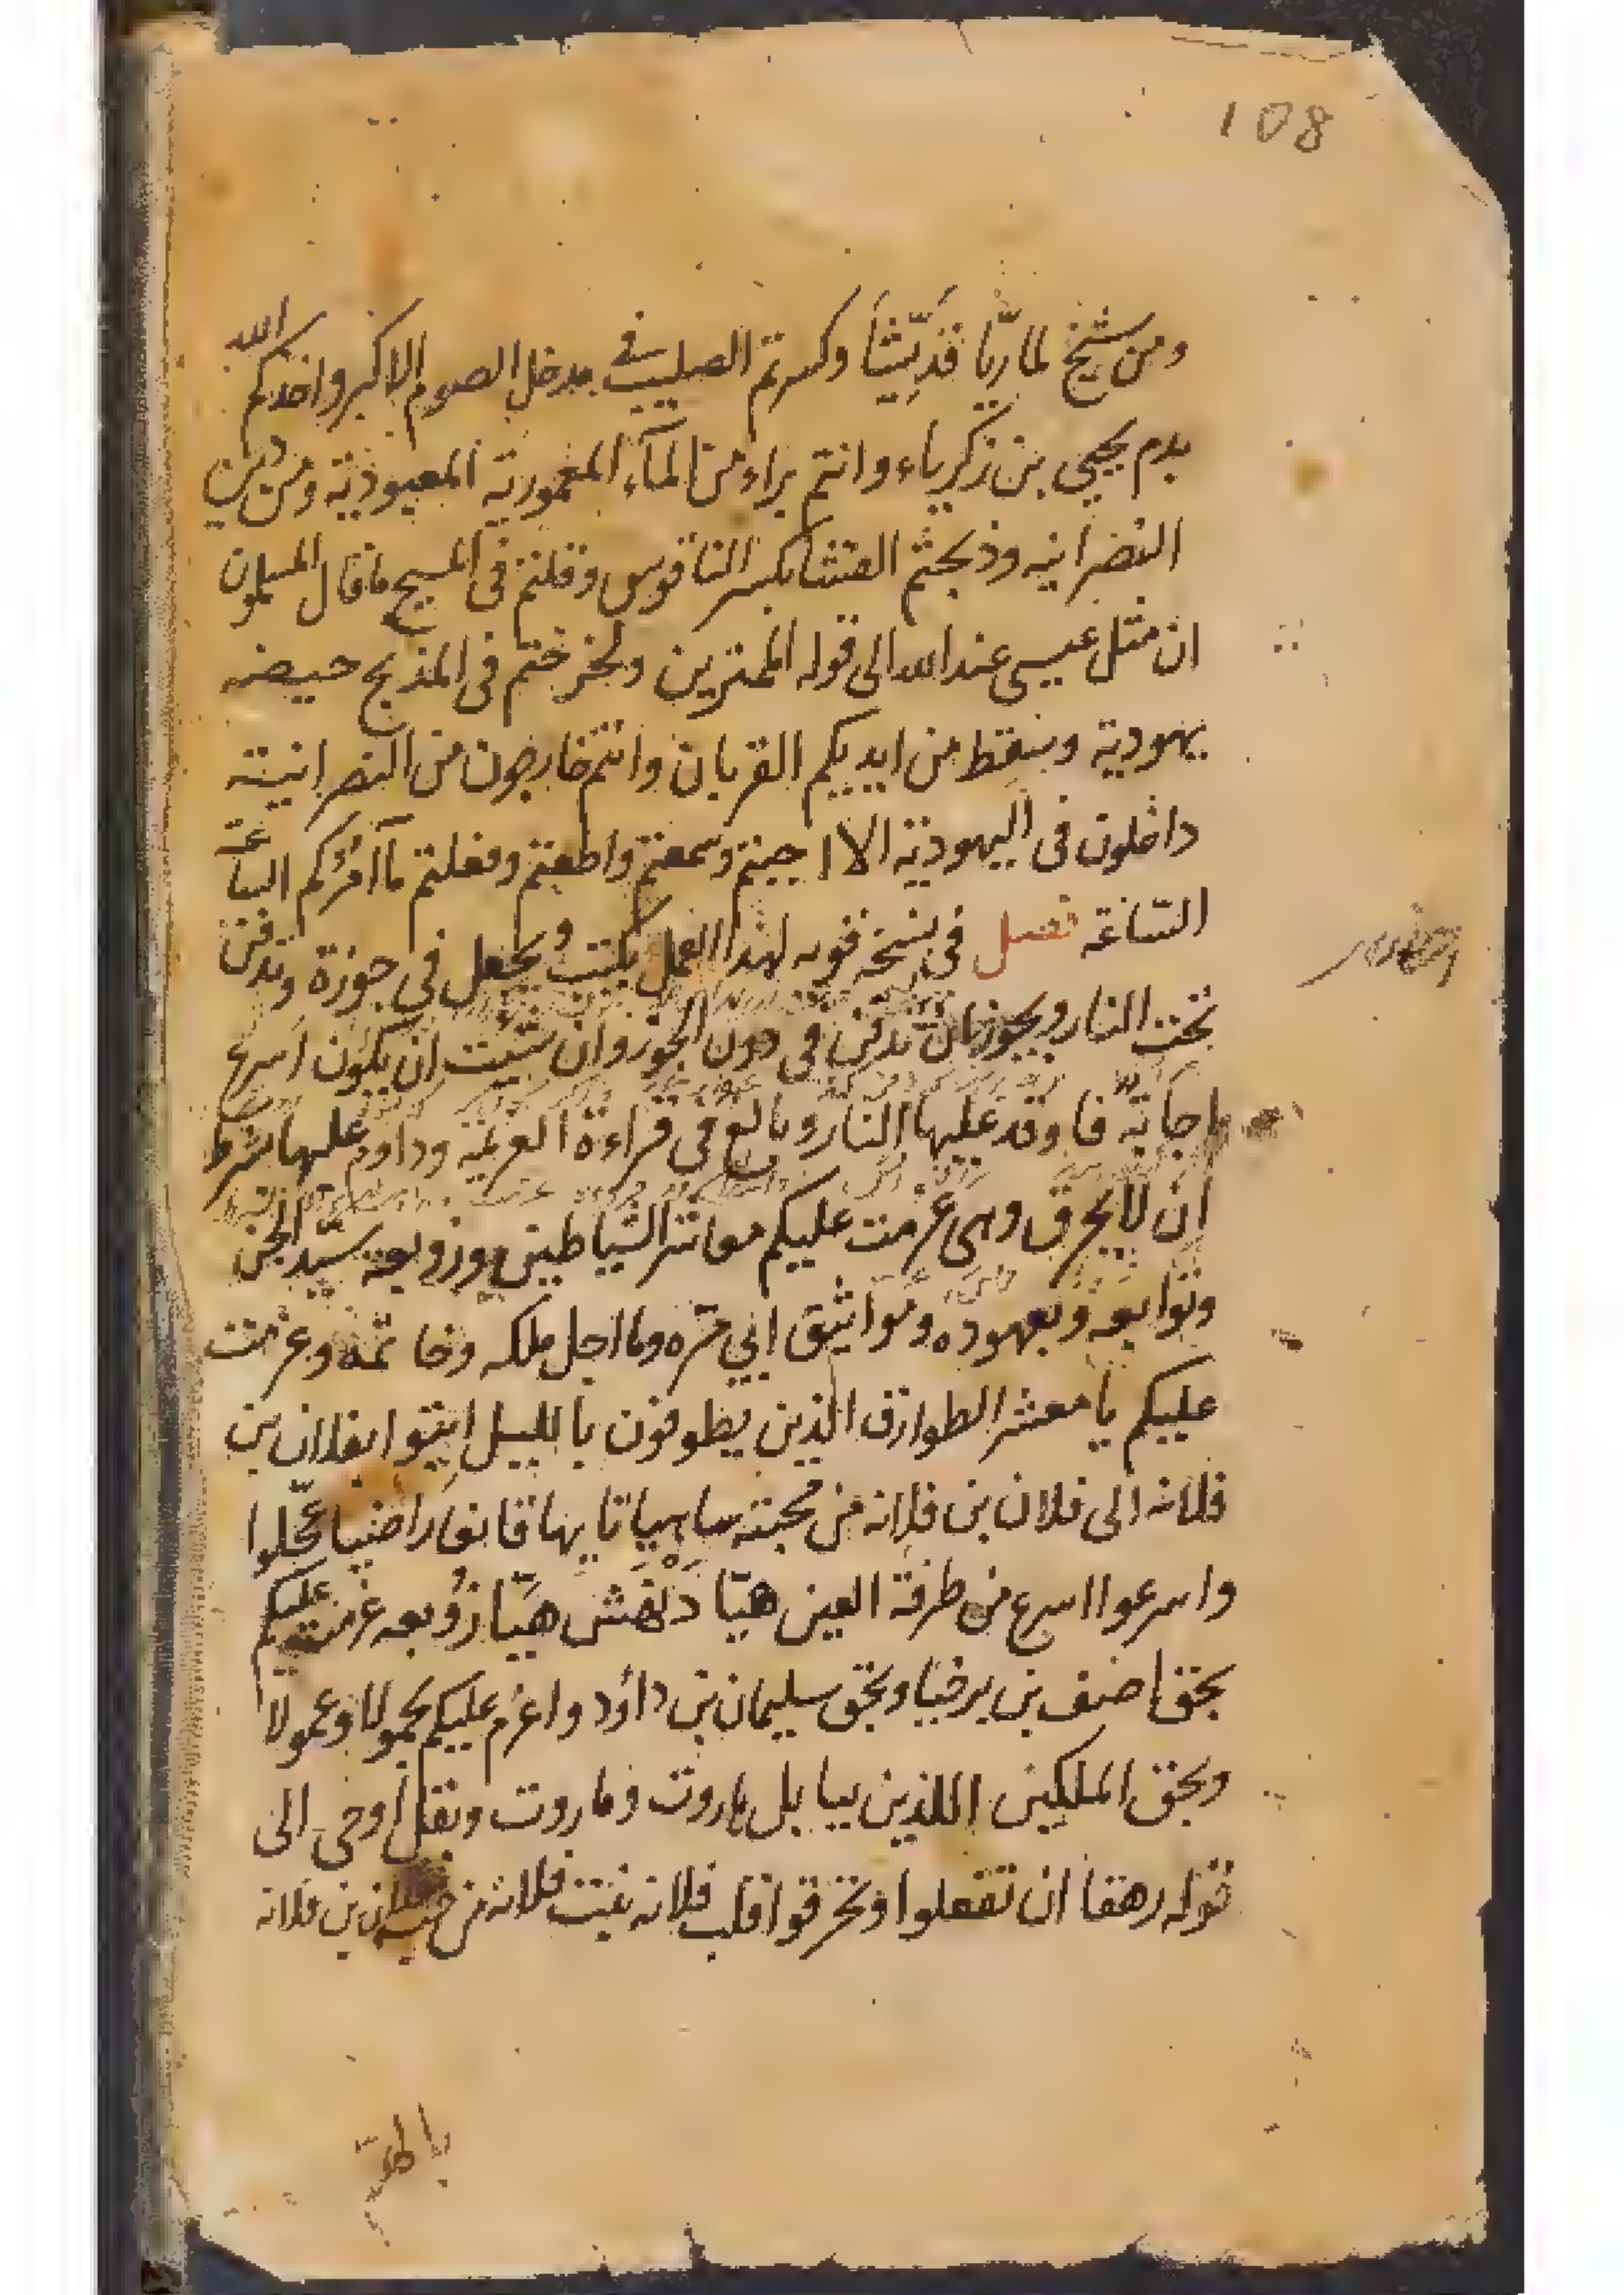 108
ومن شيخ لماريّا قدّيشا وكسرتم الصليب في مدخل الصوم الاكبر واخذكم الله
بدم يحيى بن زكرياء وانتم براء من المآء المغمورية المعبوذية ومن دين
النصرانيه وذبحتم القتنا بكسر الناقوس وقلتم في المسيح ما قال المسلمون
ان مثل عيسى عند الله الى قوله الممترين ولخرختم في المذبح حيضه
يهودية وسقط من ايديكم القربان وانتم خارجون من النصرانيته
داخلون في اليهوديه الا اجبتم وسمعتم واطعتم وفعلتم مآ آمركم الساعة
الساعة فصل في نسخه قويه لهذا العمل يكتب ويجعل في جوزة وتدفن
تحت النار ويجوز ان تدفن في دون الجوز وان شئت ان يكون اسرع
اجابة فاوقد عليها النار وبالغ في قراءة العزيمة وداوم عليها بشرط
ان لا يحرق وهى عزمت عليكم معاشر الشياطين وزوبعه سيد الجن
وتوابعه وبعهوده ومواثيق ابي مره وما اجل ملكه وخاتمه وعزمت
عليكم يا معشر الطوارق الذين يطوفون بالليل ايتوا بفلان بن
فلانه الى فلان بن فلانه من محبته ساهيا تايها قانعا راضيا عجّلوا
واسرعوا اسرع من طرفة العين هيّا دنهش هيّا زوبعه عزمت عليكم
بحق اصف بن برخيا وبحق سليمان بن داؤد واعزم عليكم بحمولا وعمولا
وبحق الملكين اللذين ببابل هاروت وماروت وبقل اوحى الى
قوله رهقا ان تفعلوا وتخرقوا قلب فلانه بنت فلانه من حب فلان بن فلانه